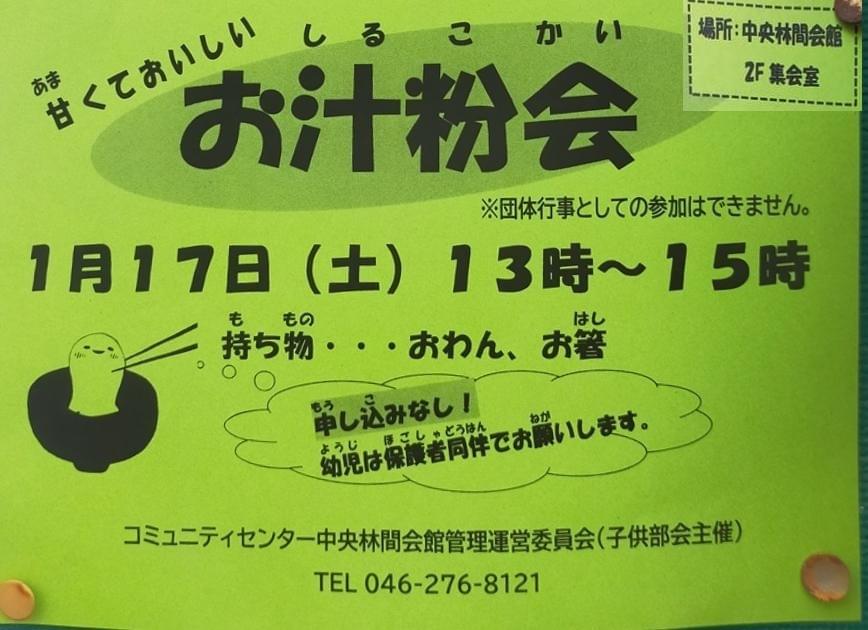 場所:中央林間会館
2F 集会室
あま
甘くておいしい
しるこかい
お汁粉会
※団体行事としての参加はできません。
1月17日(土) 13時~15時
も もの はし
持ち物・・・おわん、お箸
もう こ
申し込みなし!
ようじ ほごしゃどうはん ねが
幼児は保護者同伴でお願いします。
コミュニティセンター中央林間会館管理運営委員会(子供部会主催)
TEL 046-276-8121